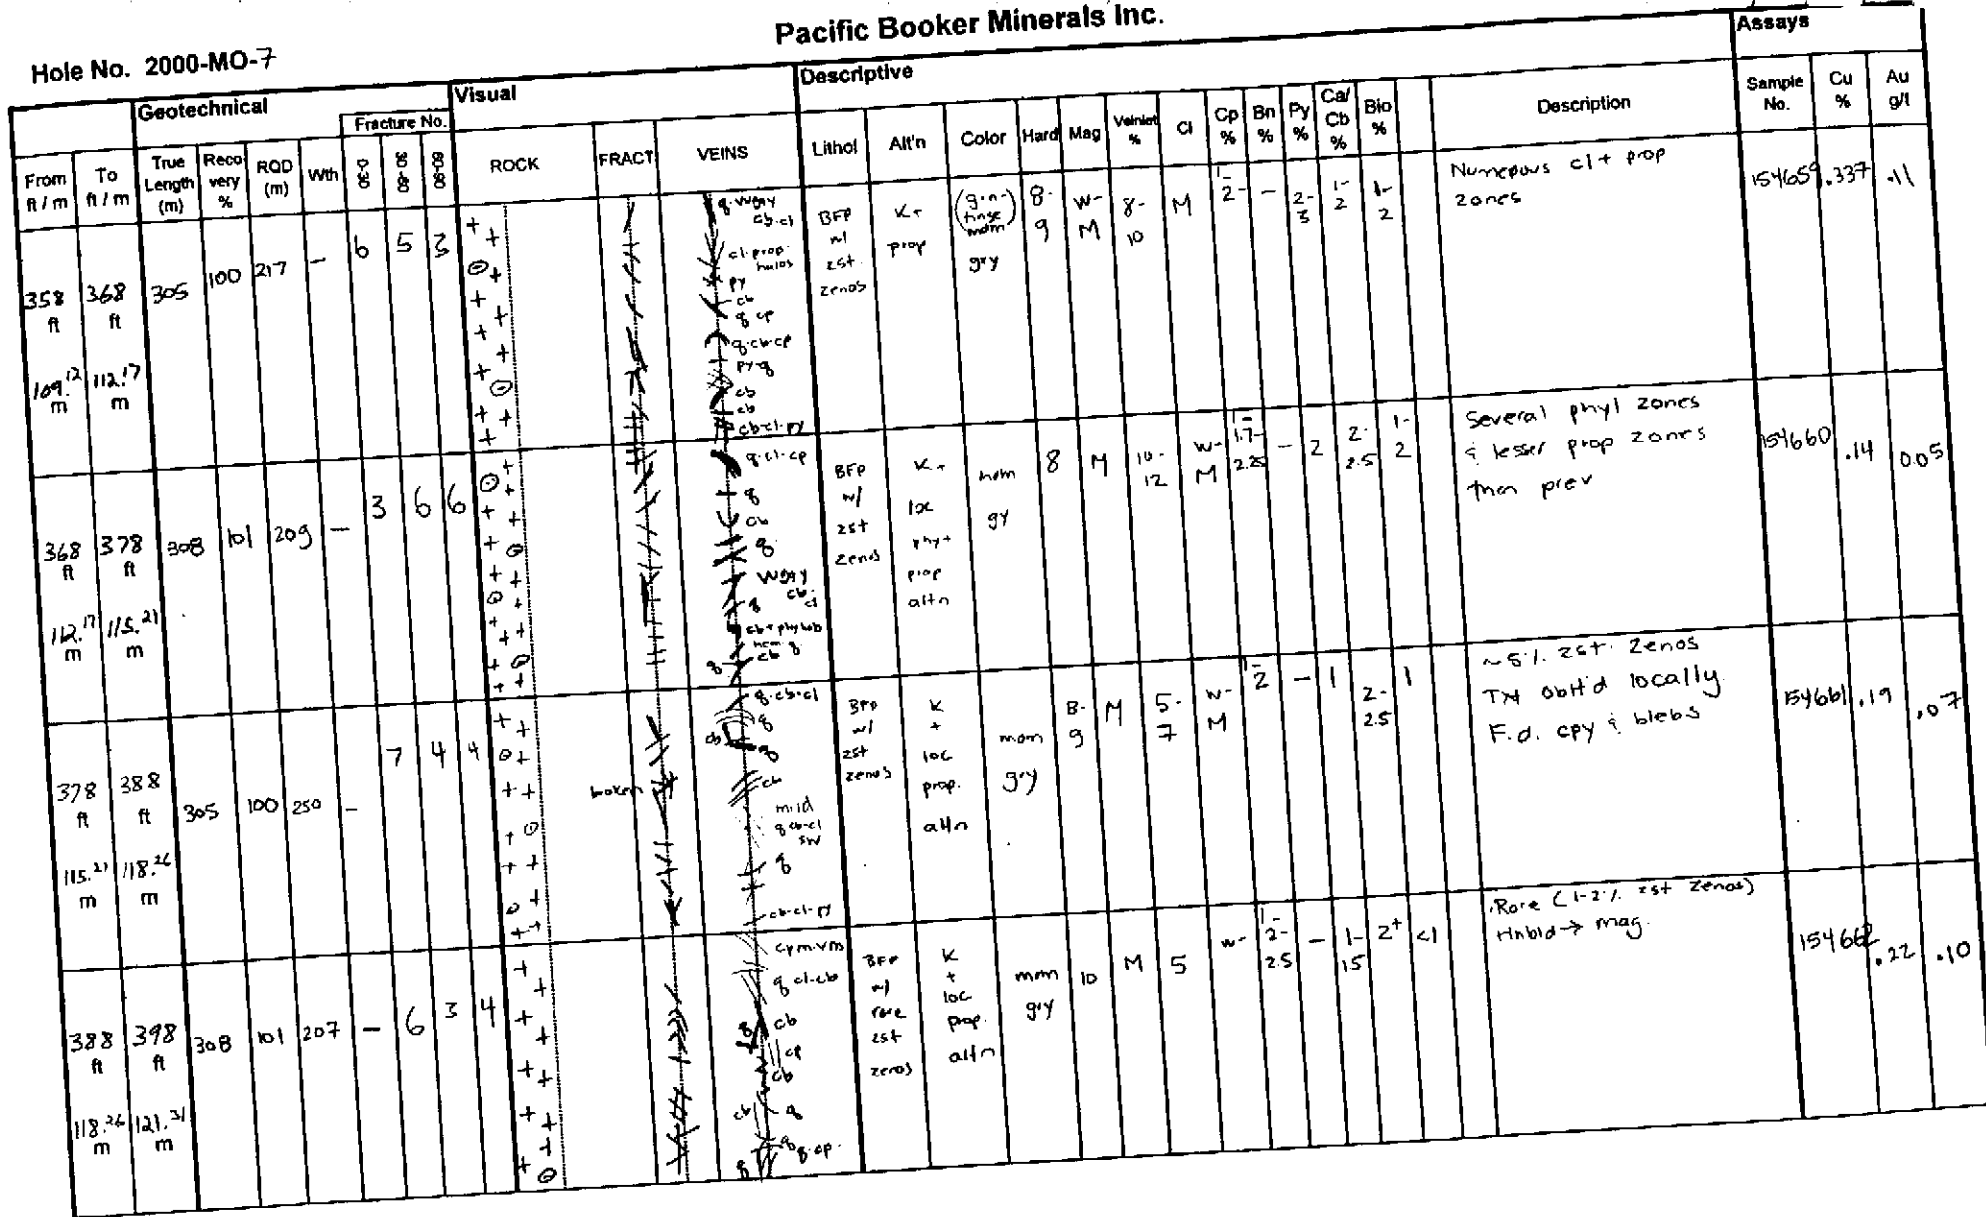 Pacific Booker Minerals Inc.
Hole No. 2000-MO-7
Geotechnical Visual Descriptive Assays
Fracture No.
From ft / m To ft / m True Length (m) Reco very % RQD (m) Wth 0-30 30-60 60-90 ROCK FRACT VEINS Lithol Alt'n Color Hard Mag Veinlet % Cl Cp % Bn % Py % Ca/ Cb % Bio % Description Sample No. Cu % Au g/t
358 ft 368 ft 305 100 217 – 6 5 3
109.12 m 112.17 m
cb-cl
cl-prop halos
py
cb
q cp
q-cb-cp
py-q
cb
cb
cb-cl-py
BFP w/ zst zenos
K+ prop
gry
8-9 W-M 8-10 M 1-2- – 2-3 1-2 1-2
Numerous cl + prop
zones
154659 .337 .11
368 ft 378 ft 308 101 209 – 3 6 6
112.17 m 115.21 m
q-cl-cp
q
cb
q
q
cb q
q
BFP w/ zst zenos
K+ loc phy+ prop altn
gy
8 M 10-12 W-M 1-1.7-2.25 – 2 2-2.5 1-2
Several phyl zones
& lesser prop zones
than prev
154660 .14 0.05
378 ft 388 ft 305 100 250 – 7 4 4
115.21 m 118.26 m
broken
q-cb-cl
q
cb
q
cb
mild
q cb-cl
sw
q
cb-cl-py
BFP w/ zst zenos
K + loc prop. altn
mgm gry
8-9 M 5-7 W-M 1-2 – 1 2-2.5 1
~5% zst. zenos
TXt oblit'd locally.
F.d. cpy & blebs
154661 .19 .07
388 ft 398 ft 308 101 207 – 6 3 4
118.26 m 121.31 m
q cl-cb
q
cb
cp
cb
cb q
q
q-cp.
BFP w/ rare zst zenos
K + loc prop. altn
mgm gry
10 M 5 w- 1-2-2.5 – 1-1.5 2+ <1
Rare (1-2% zst zenos)
Hnbld → mag.
154662 .22 .10